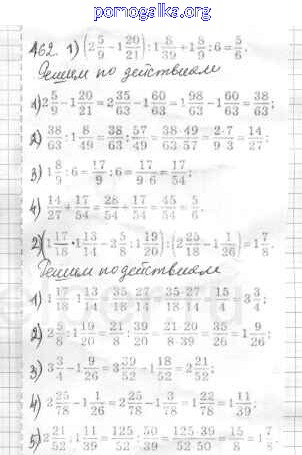 pomogalka.org
462. 1) (2 5/9 - 1 20/21) : 1 8/39 + 1 8/9 : 6 = 5/6.
Решаем по действиям
1) 2 5/9 - 1 20/21 = 2 35/63 - 1 60/63 = 1 98/63 - 1 60/63 = 38/63;
3) 1 8/9 : 6 = 17/9 : 6 = 17/9·6 = 17/54;
4) 14/27 + 17/54 = 28/54 + 17/54 = 45/54 = 5/6.
2) (1 17/18 · 1 13/14 - 2 5/8 : 1 19/20) : (2 25/78 - 1 1/26) = 1 7/8.
Решаем по действиям
1) 1 17/18 · 1 13/14 = 35/18 · 27/14 = 35·27/18·14 = 15/4 = 3 3/4;
2) 2 5/8 : 1 19/20 = 21/8 : 39/20 = 21·20/8·39 = 35/26 = 1 9/26;
3) 3 3/4 - 1 9/26 = 3 39/52 - 1 18/52 = 2 21/52;
4) 2 25/78 - 1 1/26 = 2 25/78 - 1 3/78 = 1 22/78 = 1 11/39;
5) 2 21/52 : 1 11/39 = 125/52 : 50/39 = 125·39/52·50 = 15/8 = 1 7/8.